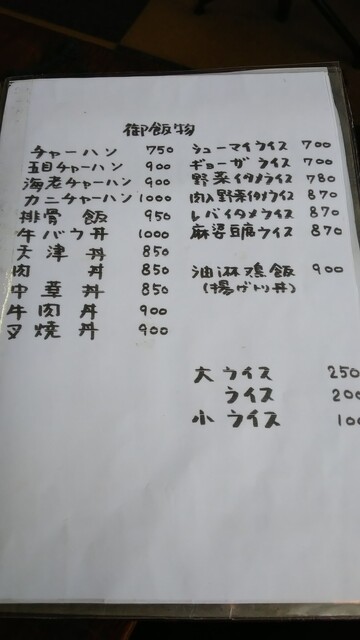 御飯物
チャーハン 750
五目チャーハン 900
海老チャーハン 900
カニチャーハン 1000
排骨飯 950
牛バラ丼 1000
天津丼 850
肉丼 850
中華丼 850
牛肉丼 900
叉焼丼 900
シューマイライス 700
ギョーザライス 700
野菜イタメライス 780
肉入野菜イタメライス 870
レバイタメライス 870
麻婆豆腐ライス 870
油淋鶏飯 900
(揚ゲトリ丼)
大ライス 250
ライス 200
小ライス 100